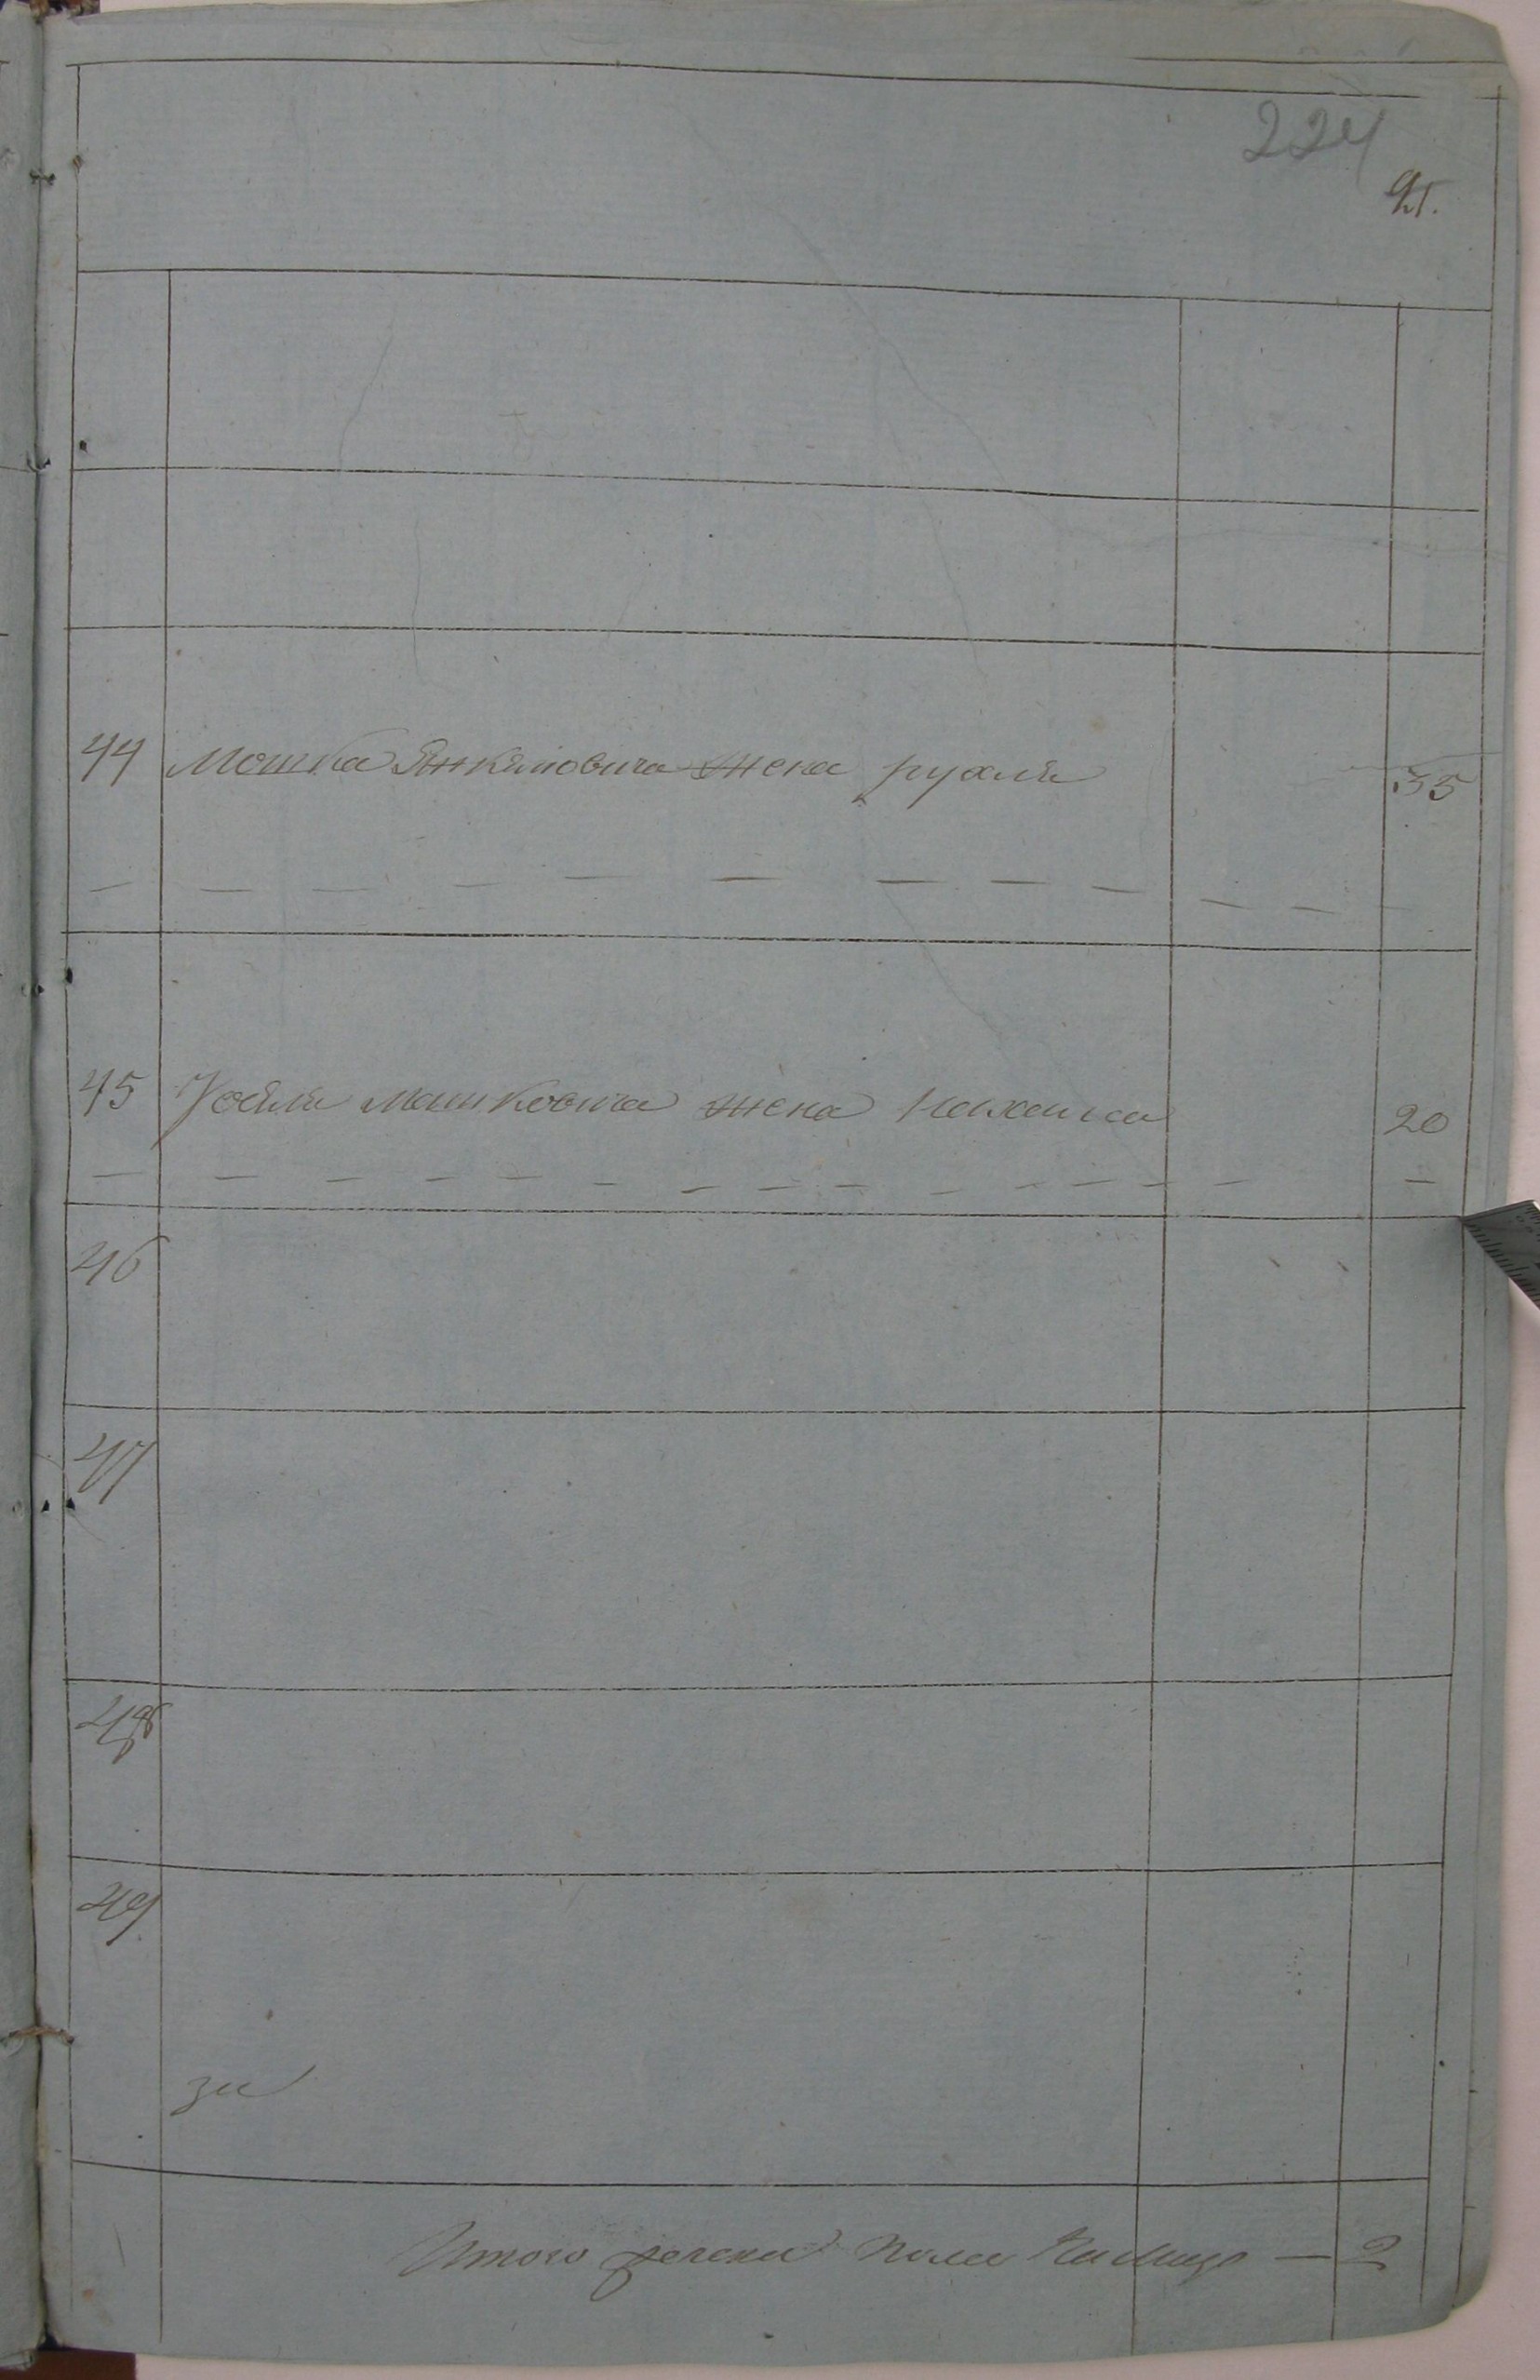 224
91.
44 Мошка Янкеловича жена рухля 35
45 Іоселя Мошковича жена 20
46
47
48
49
зи
Итого женска пола На лицо — 2